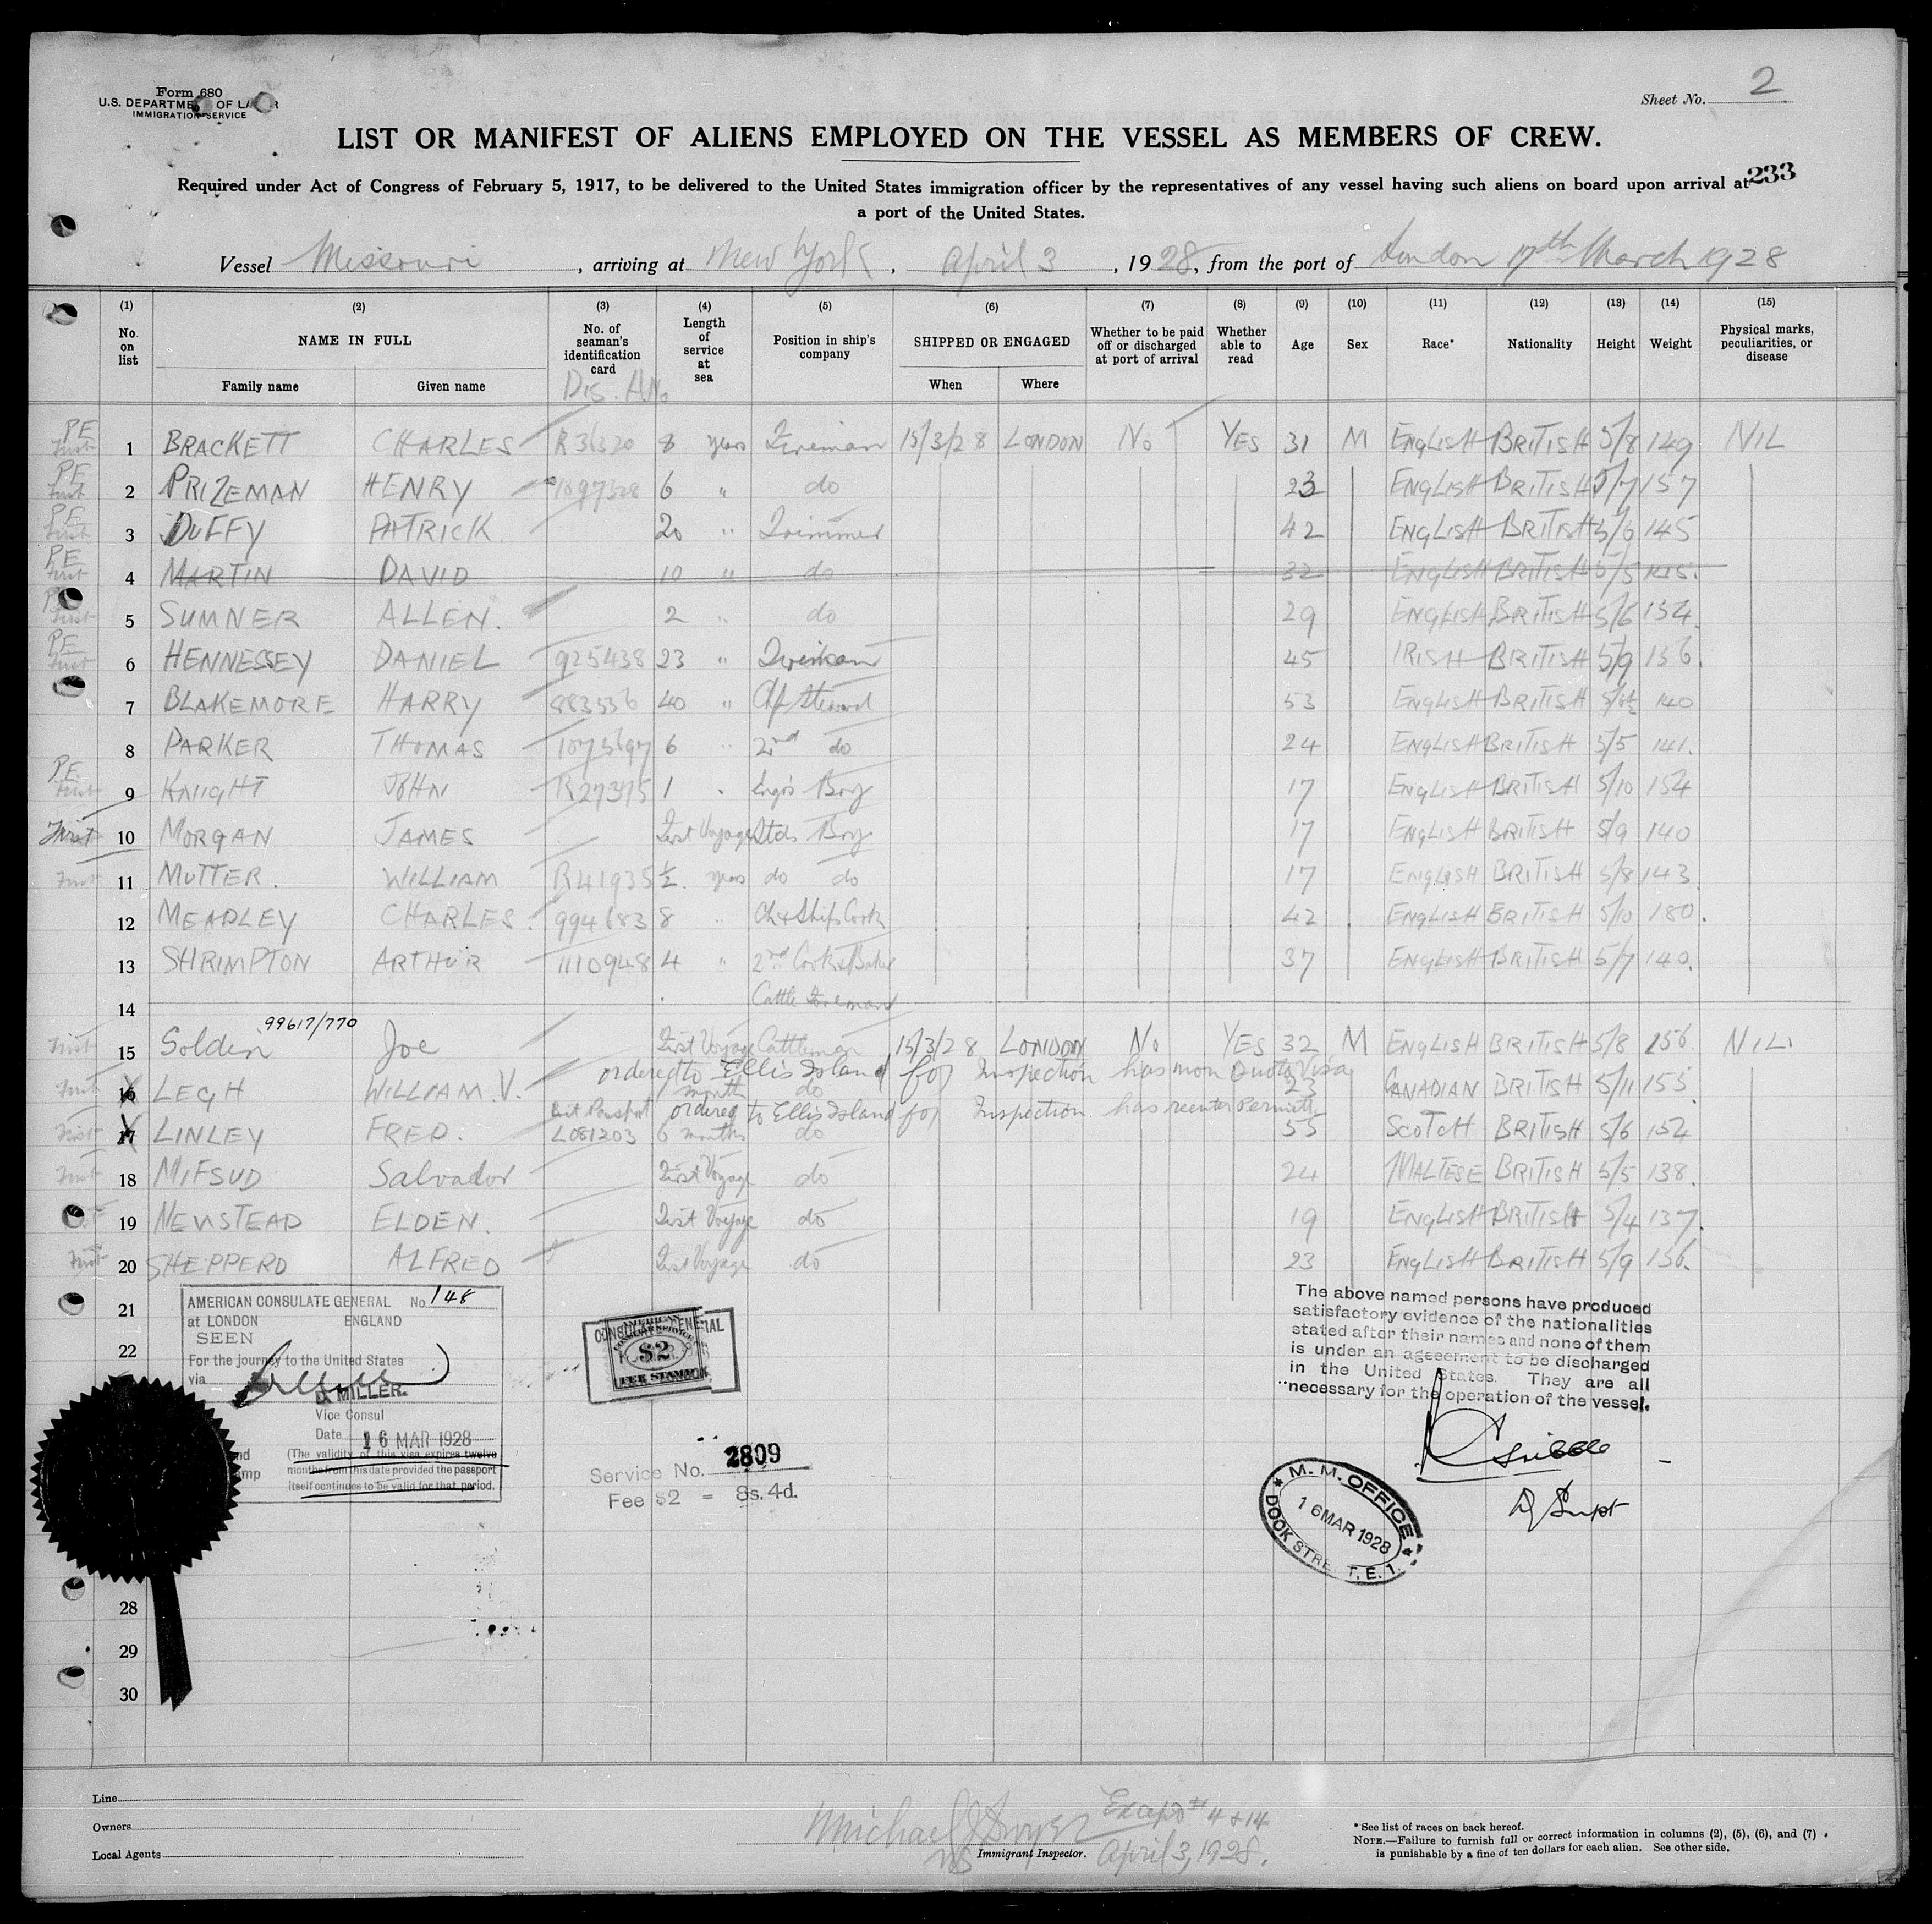 Form 680
U.S. DEPARTMENT OF LABOR
IMMIGRATION SERVICE
Sheet No. 2
LIST OR MANIFEST OF ALIENS EMPLOYED ON THE VESSEL AS MEMBERS OF CREW.
Required under Act of Congress of February 5, 1917, to be delivered to the United States immigration officer by the representatives of any vessel having such aliens on board upon arrival at 233
a port of the United States.
Vessel Missouri, arriving at New York, April 3, 1928, from the port of London 17th March 1928
(1) (2) (3) (4) (5) (6) (7) (8) (9) (10) (11) (12) (13) (14) (15)
No. on list NAME IN FULL No. of seaman's identification card Length of service at sea Position in ship's company SHIPPED OR ENGAGED Whether to be paid off or discharged at port of arrival Whether able to read Age Sex Race* Nationality Height Weight Physical marks, peculiarities, or disease
Family name Given name Dis. A No. When Where
PE First 1 BRACKETT CHARLES R31320 8 years Fireman 15/3/28 LONDON No YES 31 M ENGLISH BRITISH 5/8 149 NIL
PE First 2 PRIZEMAN HENRY 1097328 6 " do 23 ENGLISH BRITISH 5/7 157
PE First 3 DUFFY PATRICK. 20 " Trimmer 42 ENGLISH BRITISH 5/6 145
PE First 4 MARTIN DAVID 10 " do 32 ENGLISH BRITISH 5/5
First 5 SUMNER ALLEN. 2 " do 29 ENGLISH BRITISH 5/6 134
PE First 6 HENNESSEY DANIEL 925438 23 " 45 IRISH BRITISH 5/9 156.
7 BLAKEMORE HARRY 883536 40 " Chf Steward 53 ENGLISH BRITISH 5/6½ 140
8 PARKER THOMAS 1075697 6 " 2nd do 24 ENGLISH BRITISH 5/5 141.
PE First 9 KNIGHT JOHN R27375 1 " Engrs Boy 17 ENGLISH BRITISH 5/10 154
First 10 MORGAN JAMES First Voyage Stds Boy 17 ENGLISH BRITISH 5/9 140
First 11 MUTTER. WILLIAM R41935 ½ years do do 17 ENGLISH BRITISH 5/8 143
12 MEADLEY CHARLES. 994683 8 " Ch & Ships Cook 42 ENGLISH BRITISH 5/10 180.
13 SHRIMPTON ARTHUR 1110948 4 " 2nd Cook & Baker 37 ENGLISH BRITISH 5/7 140.
14 Cattle Foreman
99617/770
First 15 Solden Joe First Voyage Cattleman 15/3/28 LONDON No YES 32 M ENGLISH BRITISH 5/8 156. NIL.
ordered to Ellis Island for Inspection has non Quota Visa
First 16 LEGH WILLIAM.V. 1 month do 23 CANADIAN BRITISH 5/11 155
ordered to Ellis Island for Inspection has reenter Permitt
First 17 LINLEY FRED. L081203 6 months do 55 SCOTCH BRITISH 5/6 152
First 18 MIFSUD Salvador First Voyage do 24 MALTESE BRITISH 5/5 138.
19 NEWSTEAD ELDEN. First Voyage do 19 ENGLISH BRITISH 5/4 137.
First 20 SHEPPERD ALFRED First Voyage do 23 ENGLISH BRITISH 5/9 156.
21
22
28
29
30
AMERICAN CONSULATE GENERAL No. 148
at LONDON ENGLAND
SEEN
For the journey to the United States
via
D. MILLER.
Vice Consul
Date 16 MAR 1928
(The validity of this visa expires twelve
months from this date provided the passport
itself continues to be valid for that period.
CONSULATE GENERAL
AMERICAN
CONSULAR SERVICE
$2
FEE STAMP
Service No. 2809
Fee $2 = 8s. 4d.
The above named persons have produced
satisfactory evidence of the nationalities
stated after their names and none of them
is under an ageeement to be discharged
in the United States. They are all
necessary for the operation of the vessel.
Dy Supt
M. M. OFFICE
16 MAR 1928
DOCK STREET, E.1.
Line
Owners
Local Agents
Michael J Dwyer Except # 4 & 14
Immigrant Inspector. April 3, 1928.
*See list of races on back hereof.
NOTE.—Failure to furnish full or correct information in columns (2), (5), (6), and (7)
is punishable by a fine of ten dollars for each alien. See other side.